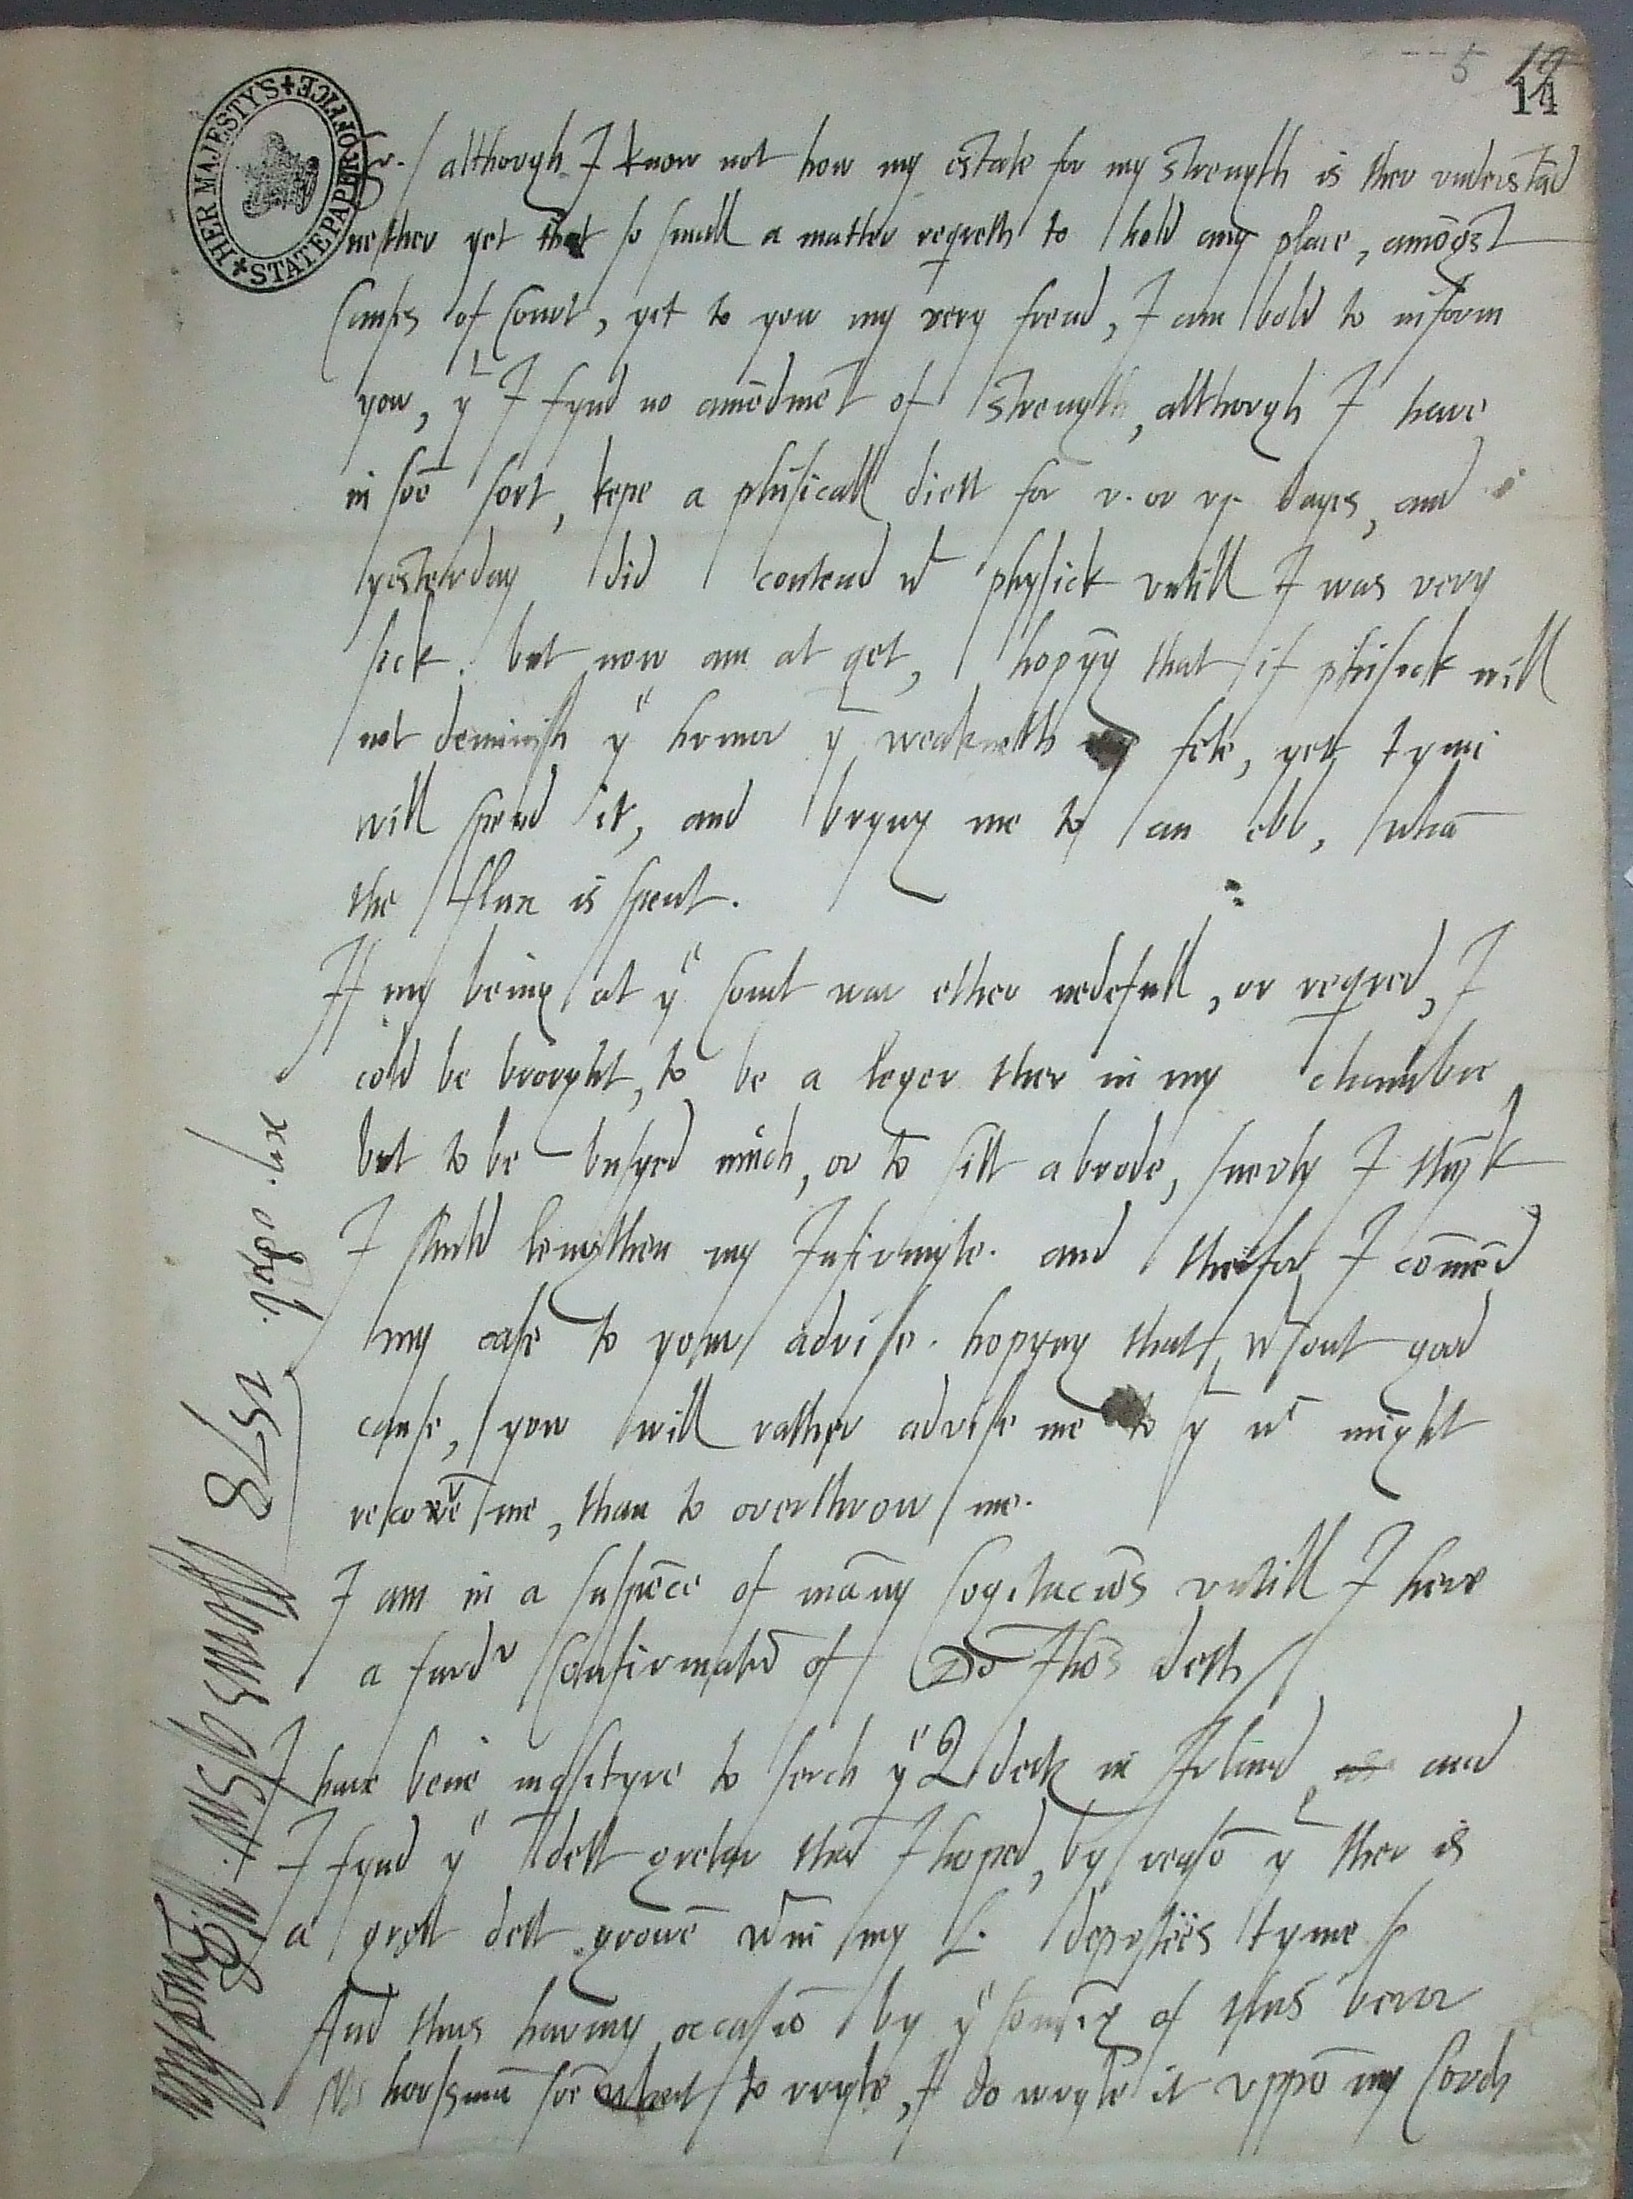 HER MAJESTY'S STATE PAPER OFFICE
5
14
Sr. although I know not how my estate for my strength is ther understād
nether yet that so small a matter reqreth to hold any place, amōgst
Causes of Court, yet to yow my very frend, I am bold to inform
yow, yt I fynd no amēdmēt of strength, although I have
in sōe sort, kepe a phisicall diett for v. or vj. dayes, and
yesterday did contend wt physick untill I was very
sick. but now am at qet, hopyg that if phisick will
not deminish ye humor yt weakneth my fete, yett tyme
will spend it, and bryng me to an ebb, whā
the flux is spent.
If my being at ye Court war ether nedefull, or reqred, I
cold be brought, to be a leger ther in my chamber
but to be busyed much, or to sitt abrode, suerly I thȳk
I shuld lengthen my Infirmyte. and therfor I cōmēd
my case to your advise. hopyng that wtout good
cause, yow will rather advise me to yt wc might
recovē me, than to overthrow me.
I am in a suspēce of māny Cogitaciōs untill I have
a furdr Confirmatiō of Dō Jhōs deth
I have bene inqsityve to serch ye Q dett in Irland and
I fynd ye dett gretar thā I hoped, by reasō yt ther is
a grett dett growē wtin my L. deputiēs tyme
And thus havyng occasiō by ye comīg of this berar
horsmā sōe what to wryte, I do wryte it uppō my Couch
xvj. octobr. 1578